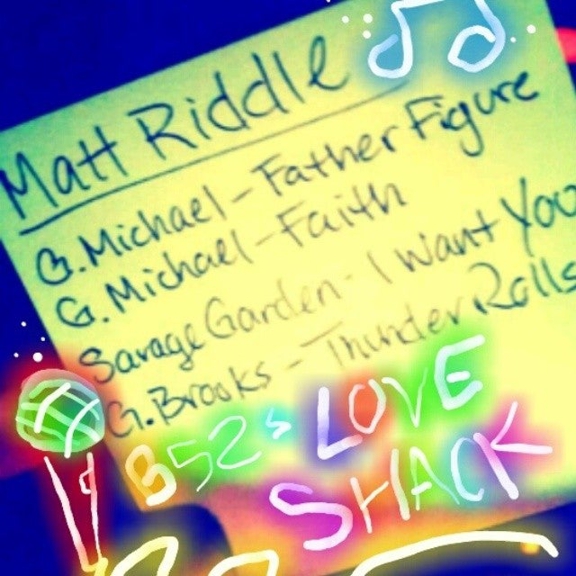 Matt Riddle
G. Michael - Father Figure
G. Michael - Faith
Savage Garden - I Want You
G. Brooks - Thunder Rolls
B52s LOVE
SHACK